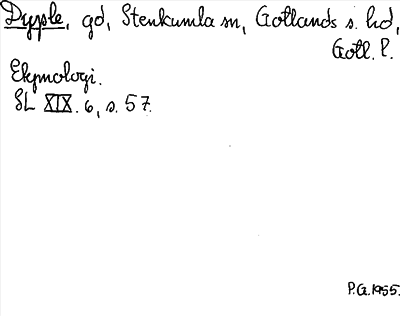 Dypsle, gd, Stenkumla sn, Gotlands s. hd,
Gotl. l.
Etymologi.
SL XIX. 6, s. 57.
P.G. 1955.